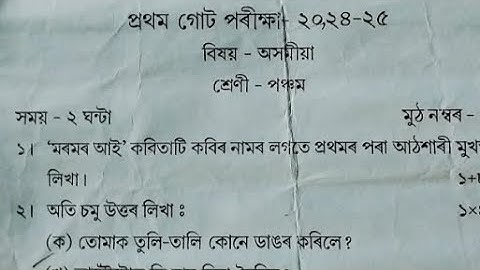 প্ৰথম গোট পৰীক্ষা- ২০,২৪-২৫
বিষয় - অসমীয়া
শ্ৰেণী - পঞ্চম
সময় - ২ ঘন্টা মুঠ নম্বৰ -
১। ‘মৰমৰ আই’ কবিতাটি কবিৰ নামৰ লগতে প্ৰথমৰ পৰা আঠশাৰী মুখ
লিখা। ১+
২। অতি চমু উত্তৰ লিখা : ১×
(ক) তোমাক তুলি-তালি কোনে ডাঙৰ কৰিলে?